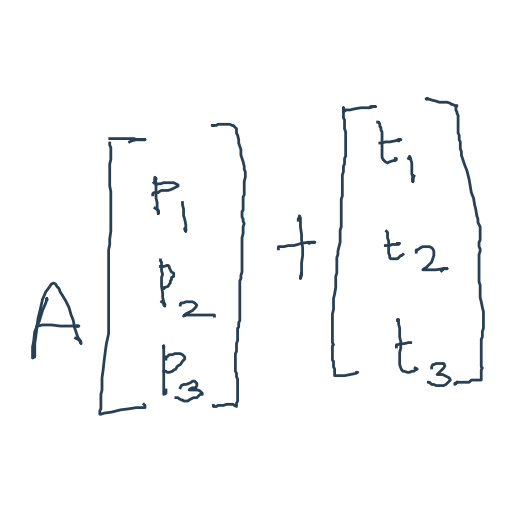 A [p₁ p₂ p₃] + [t₁ t₂ t₃]